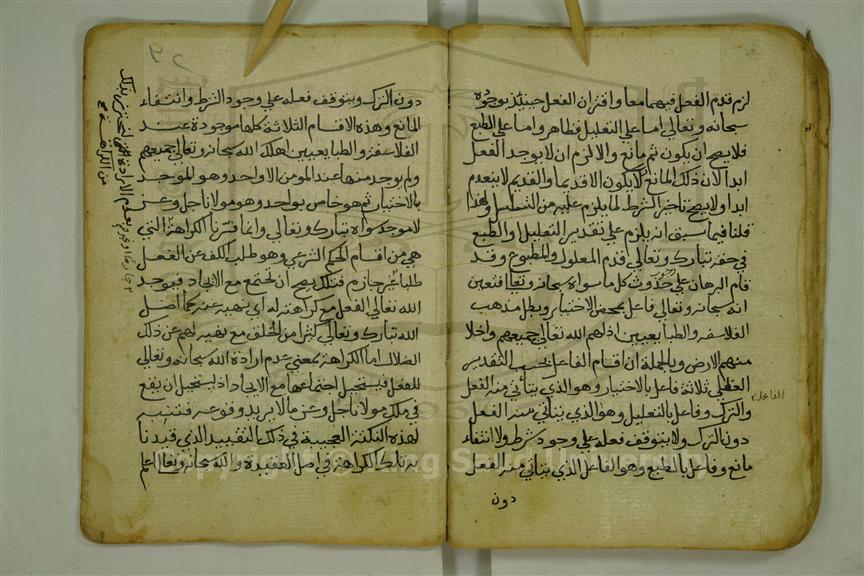 لزم قدم الفعل فيهما معا واقتران الفعل حينئذ بوجوده
سبحانه وتعالى اما على التعليل فظاهر واما على الطبع
فلا يصح ان يكون ثم مانع والا لزم ان لا يوجد الفعل
ابدا لان ذلك المانع لا يكون الا قديما والقديم لا ينعدم
ابدا ولا يصح تاخر الشرط لما يلزم عليه من التسلسل ولهذا
قلنا فيما سبق انه يلزم على تقدير التعليل او الطبع
في حقه تبارك وتعالى قدم المعلول والمطبوع وقد
قام البرهان على حدوث كل ما سواه سبحانه وتعالى فتعين
انه سبحانه وتعالى فاعل بمحض الاختيار وبطل مذهب
الفلاسفة والطبايعيين اذلهم الله تعالى جميعهم واخلا
منهم الارض وبالجملة ان اقسام الفاعل بحسب التقدير
العقلي ثلاثة فاعل بالاختيار وهو الذي يتأتى منه الفعل
والترك وفاعل بالتعليل وهو الذي يتأتى منه الفعل
دون الترك ولا يتوقف فعله على وجود شرط ولا انتفاء
مانع وفاعل بالطبع وهو الفاعل الذي يتأتى منه الفعل
دون
الفاعل
دون الترك ويتوقف فعله على وجود الشرط وانتفاء
المانع وهذه الاقسام الثلاثة كلها موجودة عند
الفلاسفة والطبايعيين اهلك الله سبحانه وتعالى جميعهم
ولم يوجد منها عند المومن الا واحد وهو الموجد
بالاختيار ثم هو خاص بواحد وهو مولانا جل وعز
لا موجد سواه تبارك وتعالى وانما فسرنا الكراهة التي
هي من اقسام الحكم الشرعي وهو طلب الكف عن الفعل
طلبا غير جازم فتلك يصح ان تجتمع مع الايجاد فيوجد
الله تعالى الفعل مع كراهته له اي نهيه عنه كما اضل
الله تبارك وتعالى كثيرا من الخلق مع نهيه لهم عن ذلك
الضلال اما الكراهة بمعنى عدم ارادة الله سبحانه وتعالى
للفعل فيستحيل اجتماعها مع الايجاد اذ يستحيل ان يقع
في ملك مولانا جل وعز ما لا يريد وقوعه فتنبه
لهذه النكتة العجيبة في ذلك التقييد الذي قيدنا
به تلك الكراهة في اصل العقيدة والله سبحانه وتعالى اعلم
بعدم الارادة
من الكراهة